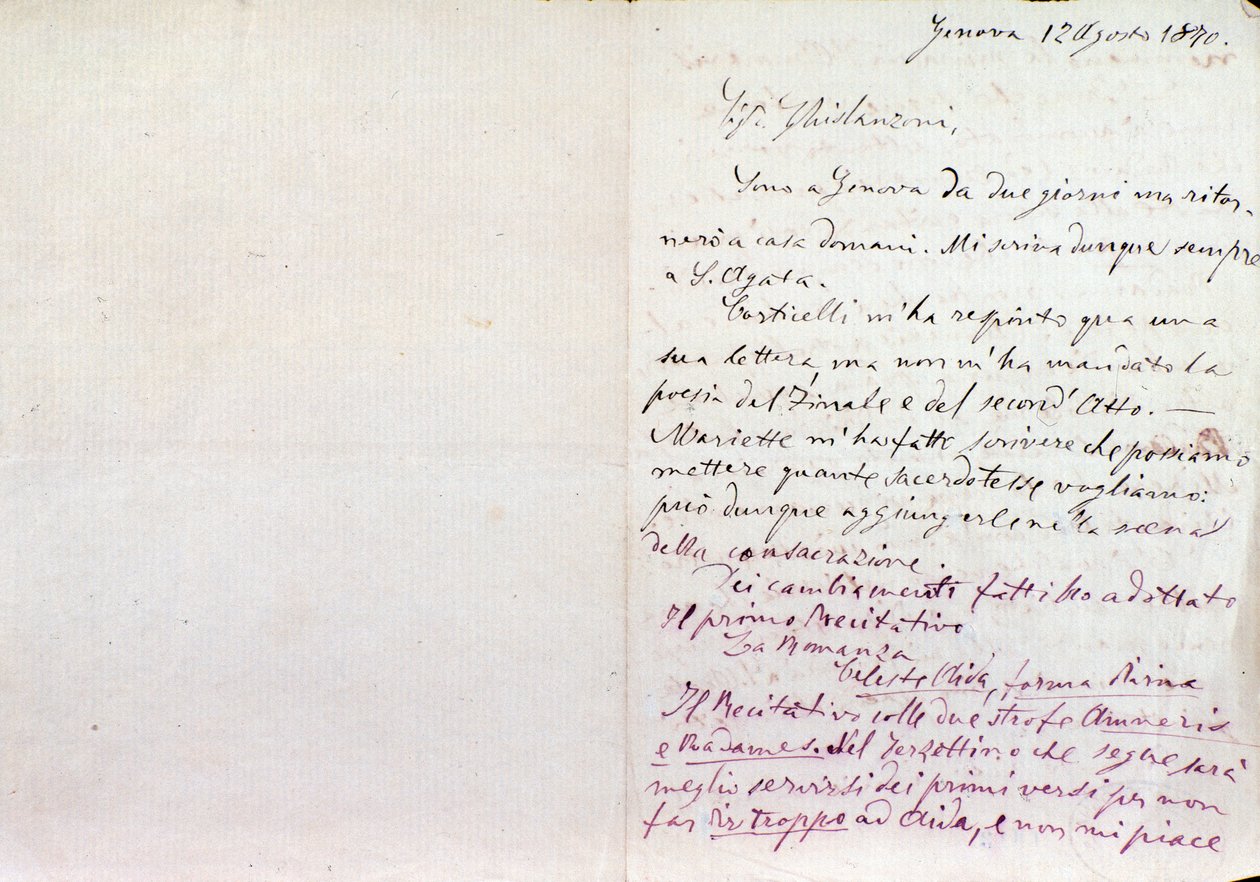 Genova 12 Agosto 1870.
Sigr. Ghislanzoni,
Sono a Genova da due giorni ma ritor-
nerò a casa domani. Mi scriva dunque sempre
a S. Agata.
Corticelli m'ha respinto qua una
sua lettera, ma non m'ha mandato la
poesia del Finale e del second'Atto. —
Mariette m'ha fatto scrivere che possiamo
mettere quante sacerdotesse vogliamo:
può dunque aggiungerle nella scena
della consacrazione.
Dei cambiamenti fatti ho adottato
Il primo Recitativo
La Romanza
Celeste Aida, forma divina
Il Recitativo colle due strofe Amneris
e Radames. Nel Terzettino che segue sarà
meglio servirsi dei primi versi per non
far dir troppo ad Aida, e non mi piace